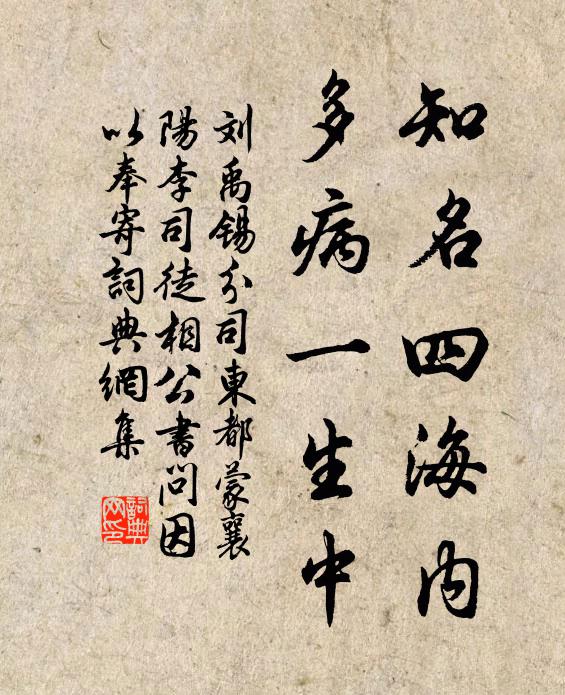 知名四海内
多病一生中
刘禹锡分司東都蒙襄
陽李司徒相公書問因
以奉寄詞典網集
詞典
网印